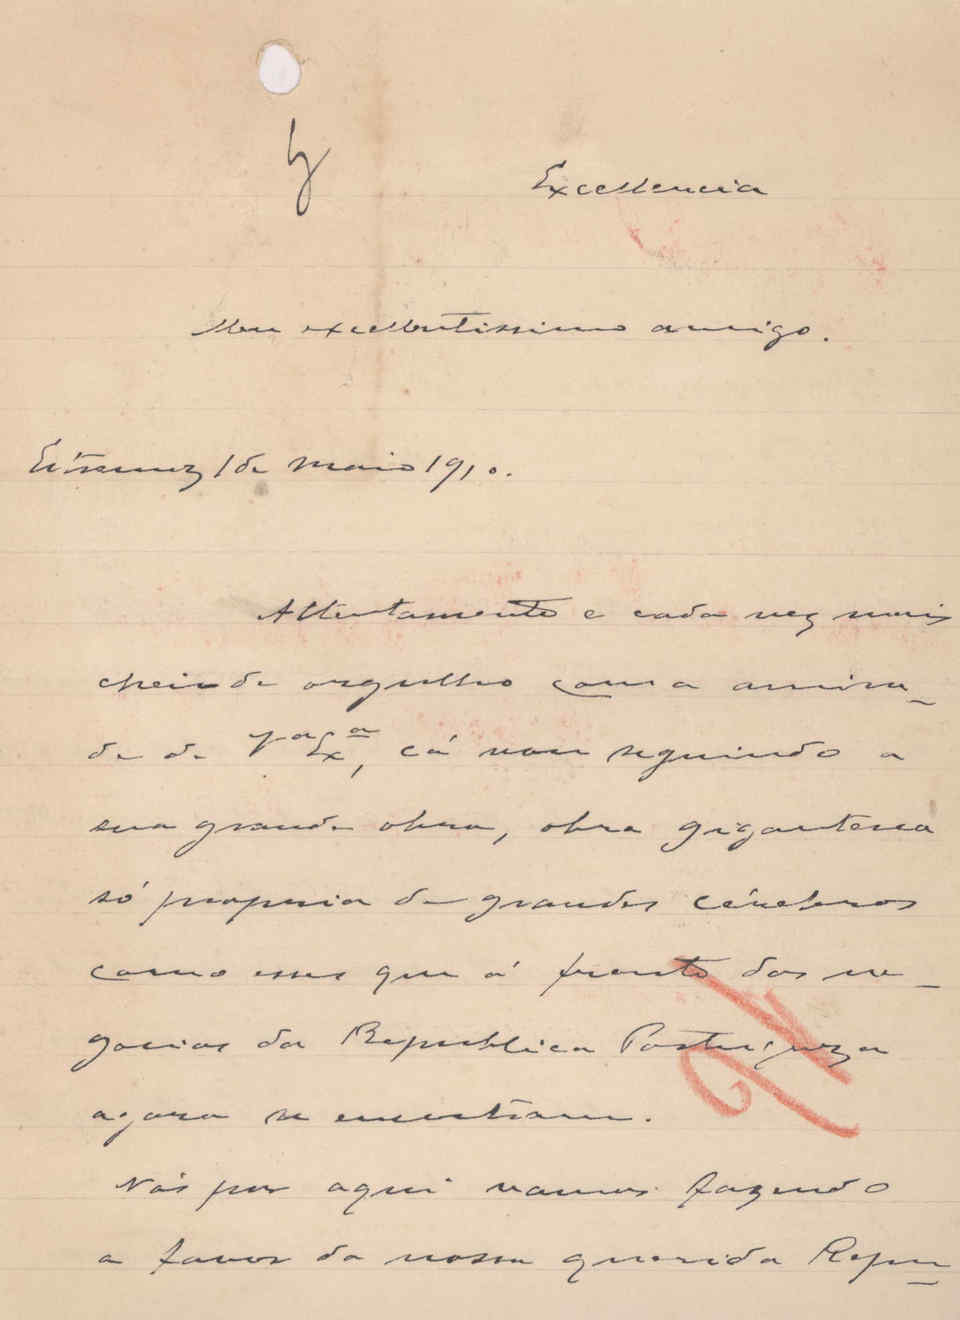 Excellencia
Meu excellentissimo amigo.
Estremoz 1 de Maio 1910.
Attentamente e cada vez mais
cheio de orgulho com a amisa-
de de Vª Exª, cá vou seguindo a
sua grande obra, obra gigantesca
só propria de grandes cérebros
como esses que á frente dos ne-
gocios da Republica Portugueza
agora se encontram.
Nós por aqui vamos fazendo
a favor da nossa querida Repu-